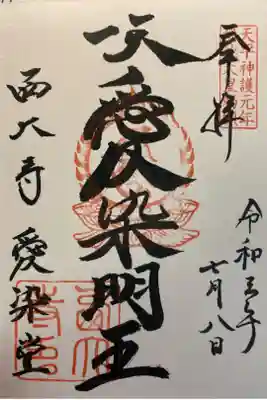 天平神護元年
奉拝
令和三年
七月八日
大愛染明王
西大寺 愛染堂